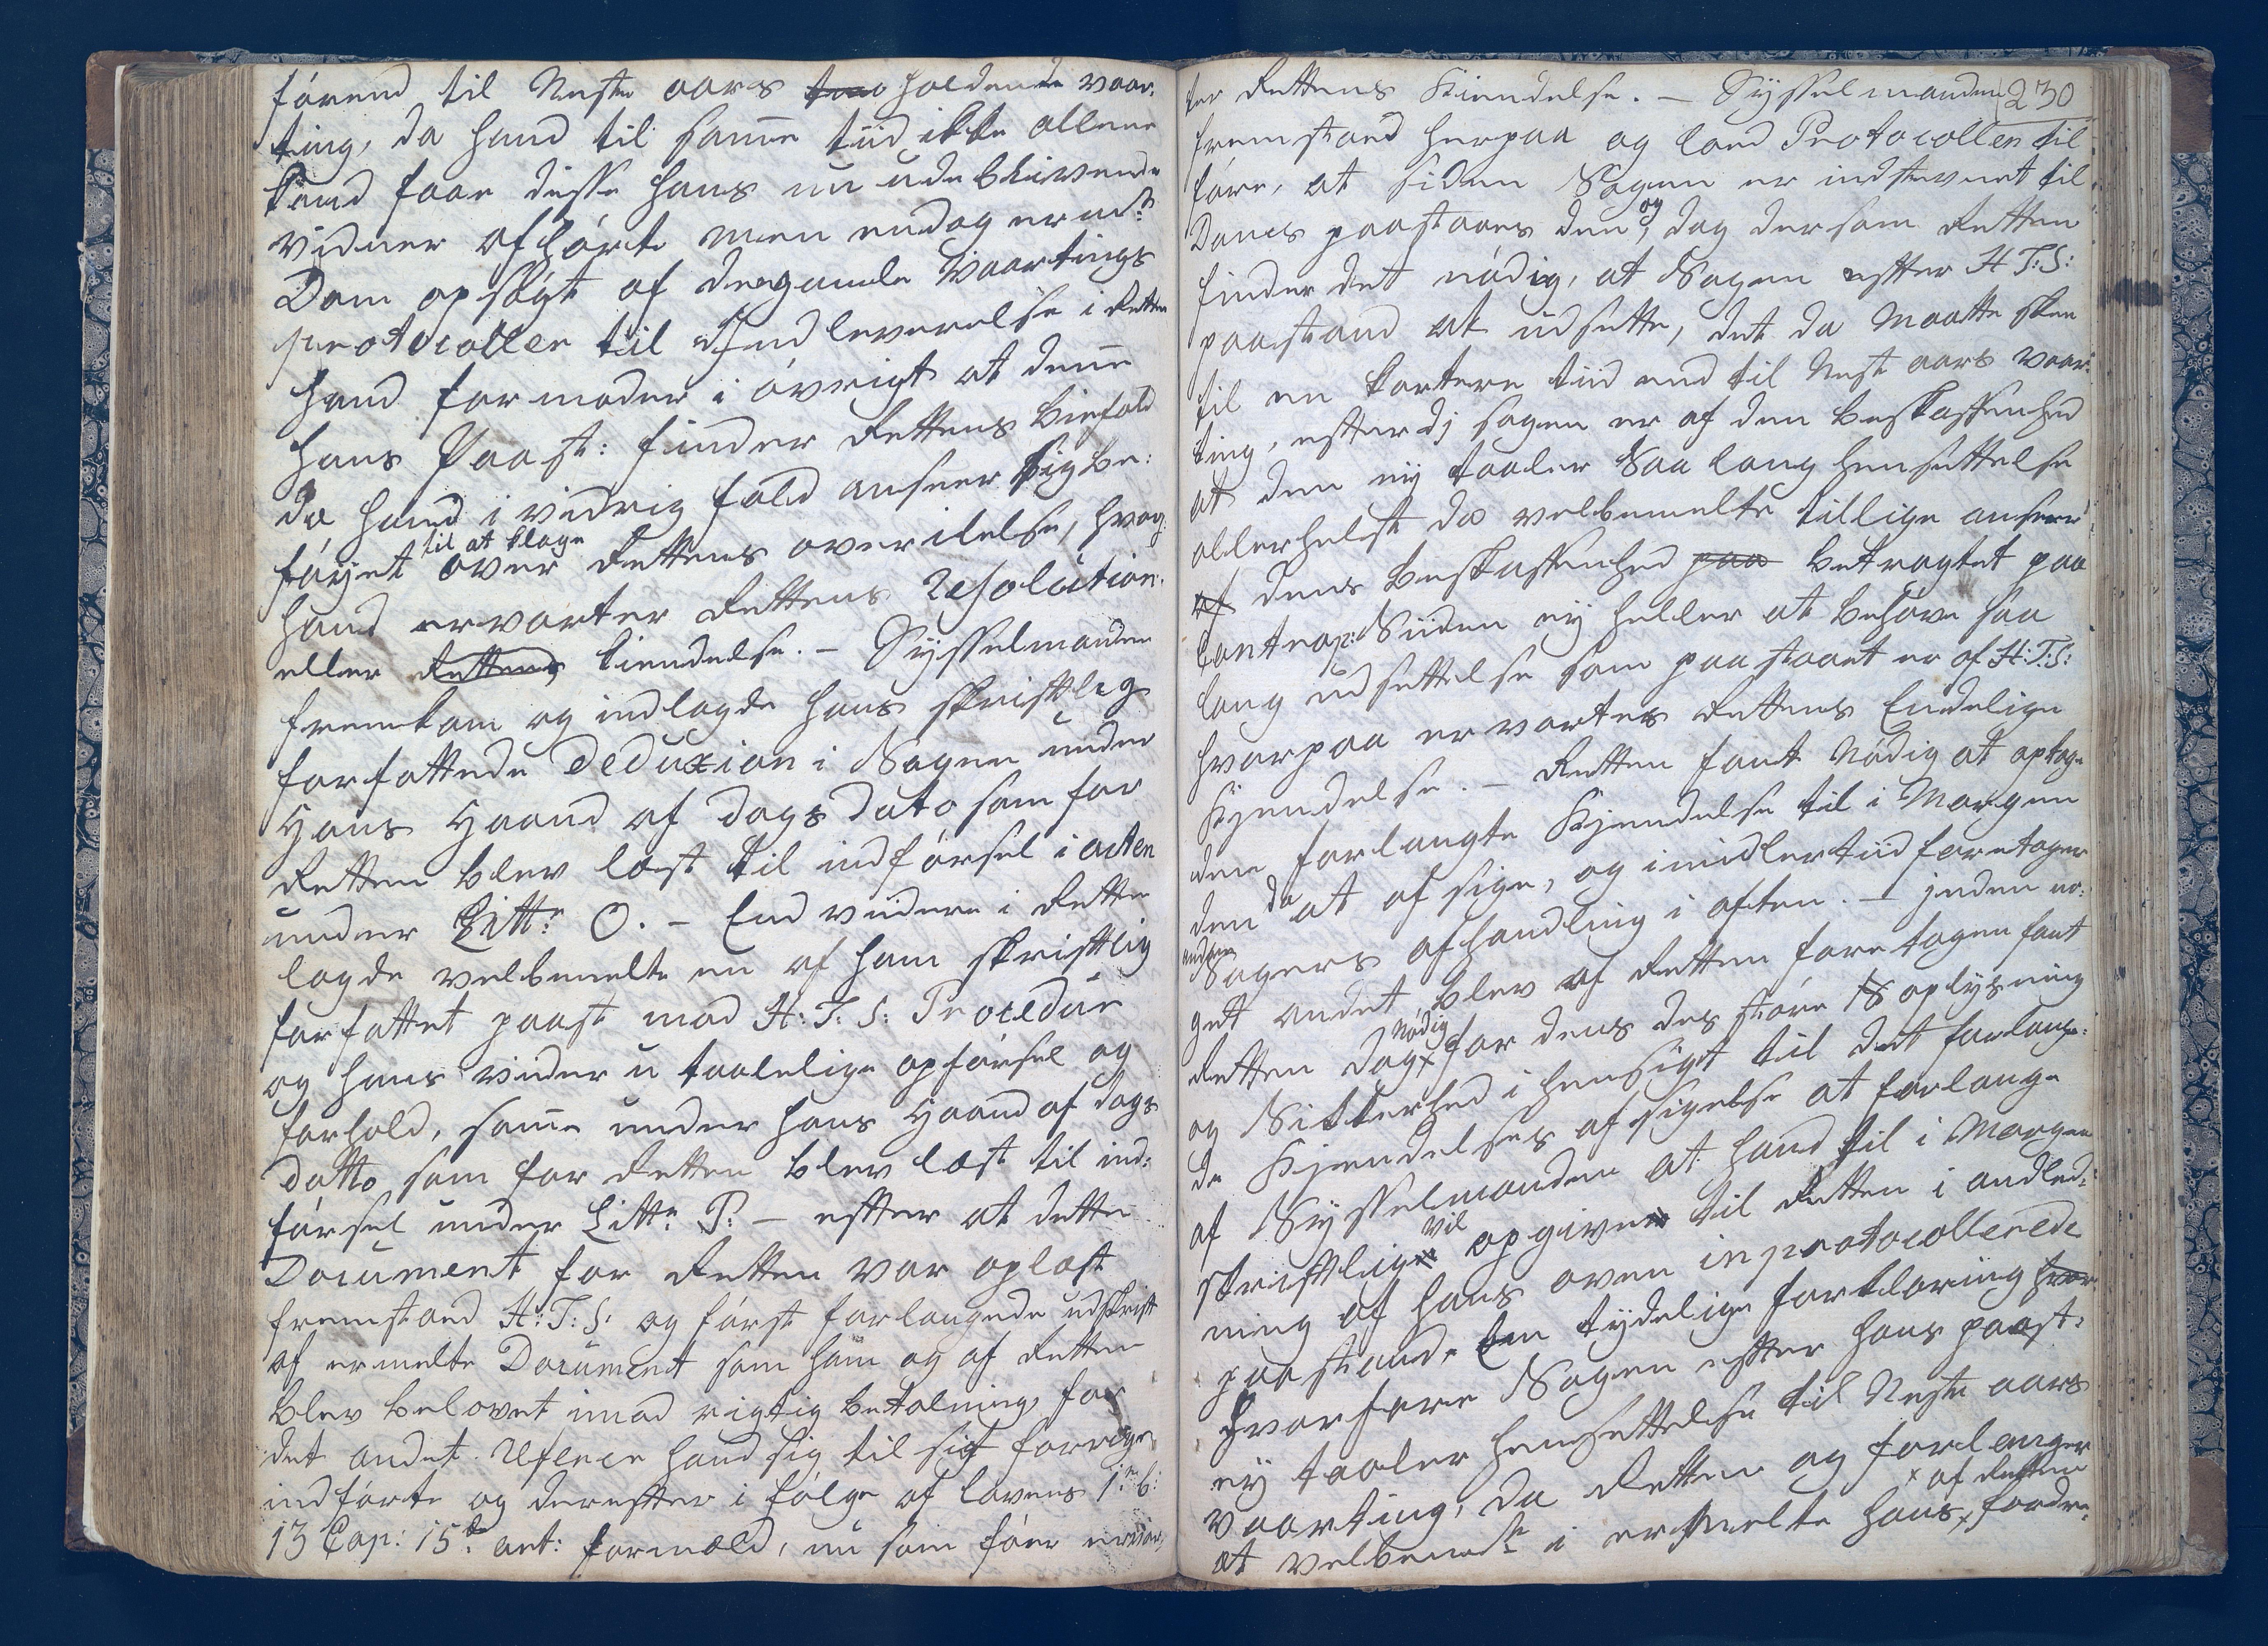 førend til Neste aars holdende vaar-
ting, da hand til samme tiid ikke allene
kand faae disse hans nu udeblivende
vidner afhørte men endog ermte
Dom opsøgt af de gamle Vaartings
protocoller til Indleverelse i Retten
hand formoder i øvrigt at denne
hans Paast: finder Rettens biefald
da hand i vidrig fald anseer sig be:
føyet til at klage over Rettens overilelse, hvor
hand ervarter Rettens Resolution
eller Rettens kiendelse. – Sysselmanden
fremkom og indlagde hans skriftlig
forfattede Deduxion i Sagen under
Hans Haand af Dags Dato som for
Retten blev læst til indførsel i acten
under Litt: O. – End videre i Rette
lagde velbemelte en af ham skriftlig
forfattet paast mod H: T: S: Procedur
og hans videre utaalelige opførsel og
forhold, samme under hans Haand af Dags
datto som for Retten blev læst til ind:
førsel under Litt: P: – efter at dette
Document for Retten var oplæst
fremstoed H: T: S: og først forlangede udskrift
af ermelte Document som ham og af Retten
blev belovet imod rigtig betalning, for
det andet Referer hand sig til sit forrige
indførte og derefter i følge af lovens 1: b:
13 Cap: 15de art: formæld, nu som før ervar,
ter Rettens Kiendelse. – Sysselmanden 230
fremstoed herpaa og loed Protocollen til-
føre, at siden Sagen er indstevnet til
Doms paastaaes den og, dog dersom Retten
finder det nødig, at Sagen efter H T: S:
paastand at udsette, det da Maatte skee
til en kortere tiid end til Nest aars vaar-
ting, efterdj sagen er af den beskaffenhed
at den ey taaler saa lang hensettelse
allerhelst da velbemelte tillige anseer
af dens beskaffenhed paa betragtet paa
Contrap: Siiden ey heller at behøve saa
lang udsettelse som paastaaet er af H: T: S:
hvorpaa ervartes Rettens Endelige
Kjendelse. – Retten fant Nødig at optage
den forlangte Kjendelse til i Morgen
den da at afsige, og imidlertiid foretager
andre Sagers afhandling i aften. – jnden no:
get andet blev af Retten foretagen fant
Retten dog x nødig for dens des større oplysning
og Sikkerhed i hensigt til det forlang:
de Kjendelses afsigelse at forlange
af Sysselmanden at hand til i Morgen
skriftlig vil opgive til Retten i andled:
ning af hans oven inprotocollerede
paastand, en tydelig forklaring hvor
hvorfore Sagen efter hans paast:
ey taaler hensettelse til Neste aars
vaarting, da Retten og forlanger
at velbemte i ermelte hans x af Retten fordre: